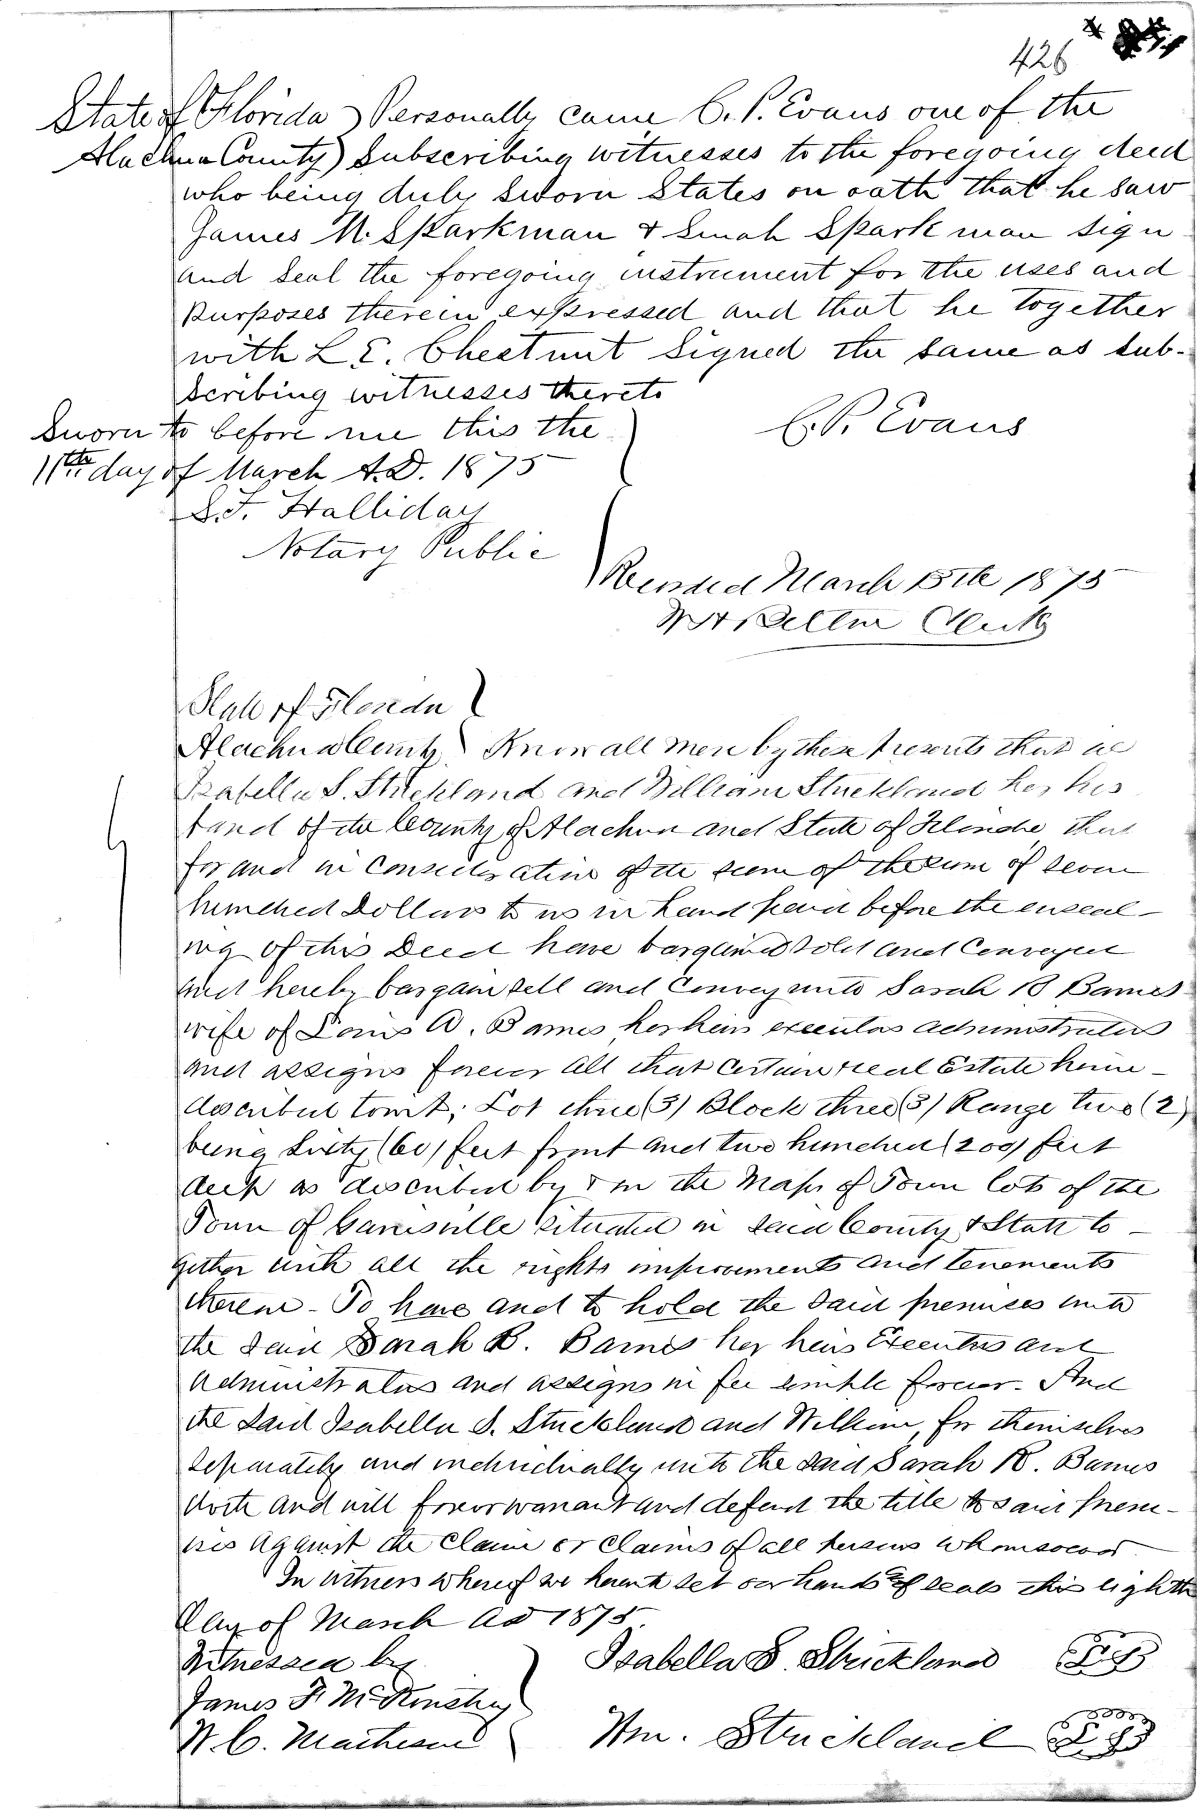 426
State of Florida ) Personally came C. P. Evans one of the
Alachua County ) Subscribing witnesses to the foregoing deed
who being duly Sworn States on oath that he saw
James M. Sparkman & Smah Sparkman sign
and seal the foregoing instrument for the uses and
purposes therein expressed and that he together
with L. E. Chestnut Signed the same as sub-
scribing witnesses thereto
C. P. Evans
Sworn to before me this the
11th day of March A.D. 1875
S. F. Halliday
Notary Public
Recorded March 15th 1875
Clerk
State of Florida
Alachua County Know all men by these presents that we
Isabella S. Strickland and William Strickland her hus
band of the County of Alachua and State of Florida, that
for and in consideration of the sum of the sum of seven
hundred Dollars to us in hand paid before the enseal-
ing of this Deed have bargained sold and conveyed
and hereby bargain sell and convey unto Sarah B Barnes
wife of Louis A. Barnes her heirs executors administrators
and assigns forever all that certain real Estate herein-
described towit; Lot three (3) Block three (3) Range two (2)
being Sixty (60) feet front and two hundred (200) feet
deep as described by & on the Maps of Town lots of the
Town of Gainsville situated in said County & State to-
gether with all the rights improvements and tenements
therein - To have and to hold the said premises unto
the said Sarah B. Barnes her heirs Executors and
administrators and assigns in fee simple forever. And
the said Isabella S. Strickland and William, for themselves
separately and individually unto the said Sarah B. Barnes
doth and will forever warrant and defend the title to said prem-
ises against the claim or claims of all persons whomsoever.
In witness whereof we hereunto set our hands & seals this eighth
day of March AD 1875.
Witnessed by
Isabella S. Strickland LS
James F. McKinstry
W. C. Matheson
Wm. Strickland LS